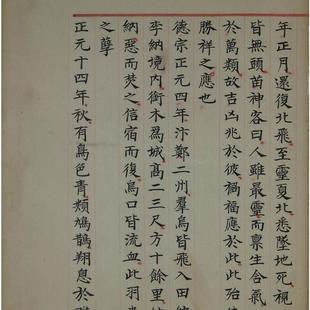 年正月還復北飛至靈夏北悉墜地死視
皆無頭苗神客曰人雖最靈而稟生含氣
於萬類故吉凶兆於彼禍福應於此此殆
勝祥之應也
德宗正元四年汴鄭二州羣烏皆飛入田緒
李納境內銜木爲城高二三尺方十餘里
納惡而焚之信宿而復烏口皆流血此羽
之孽
正元十四年秋有鳥色青類鳩鵲翔息於